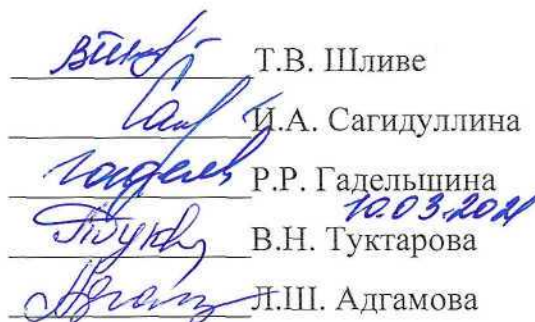 Т.В. Шливе
И.А. Сагидуллина
Р.Р. Гадельшина
10.03.2021
В.Н. Туктарова
Л.Ш. Адгамова